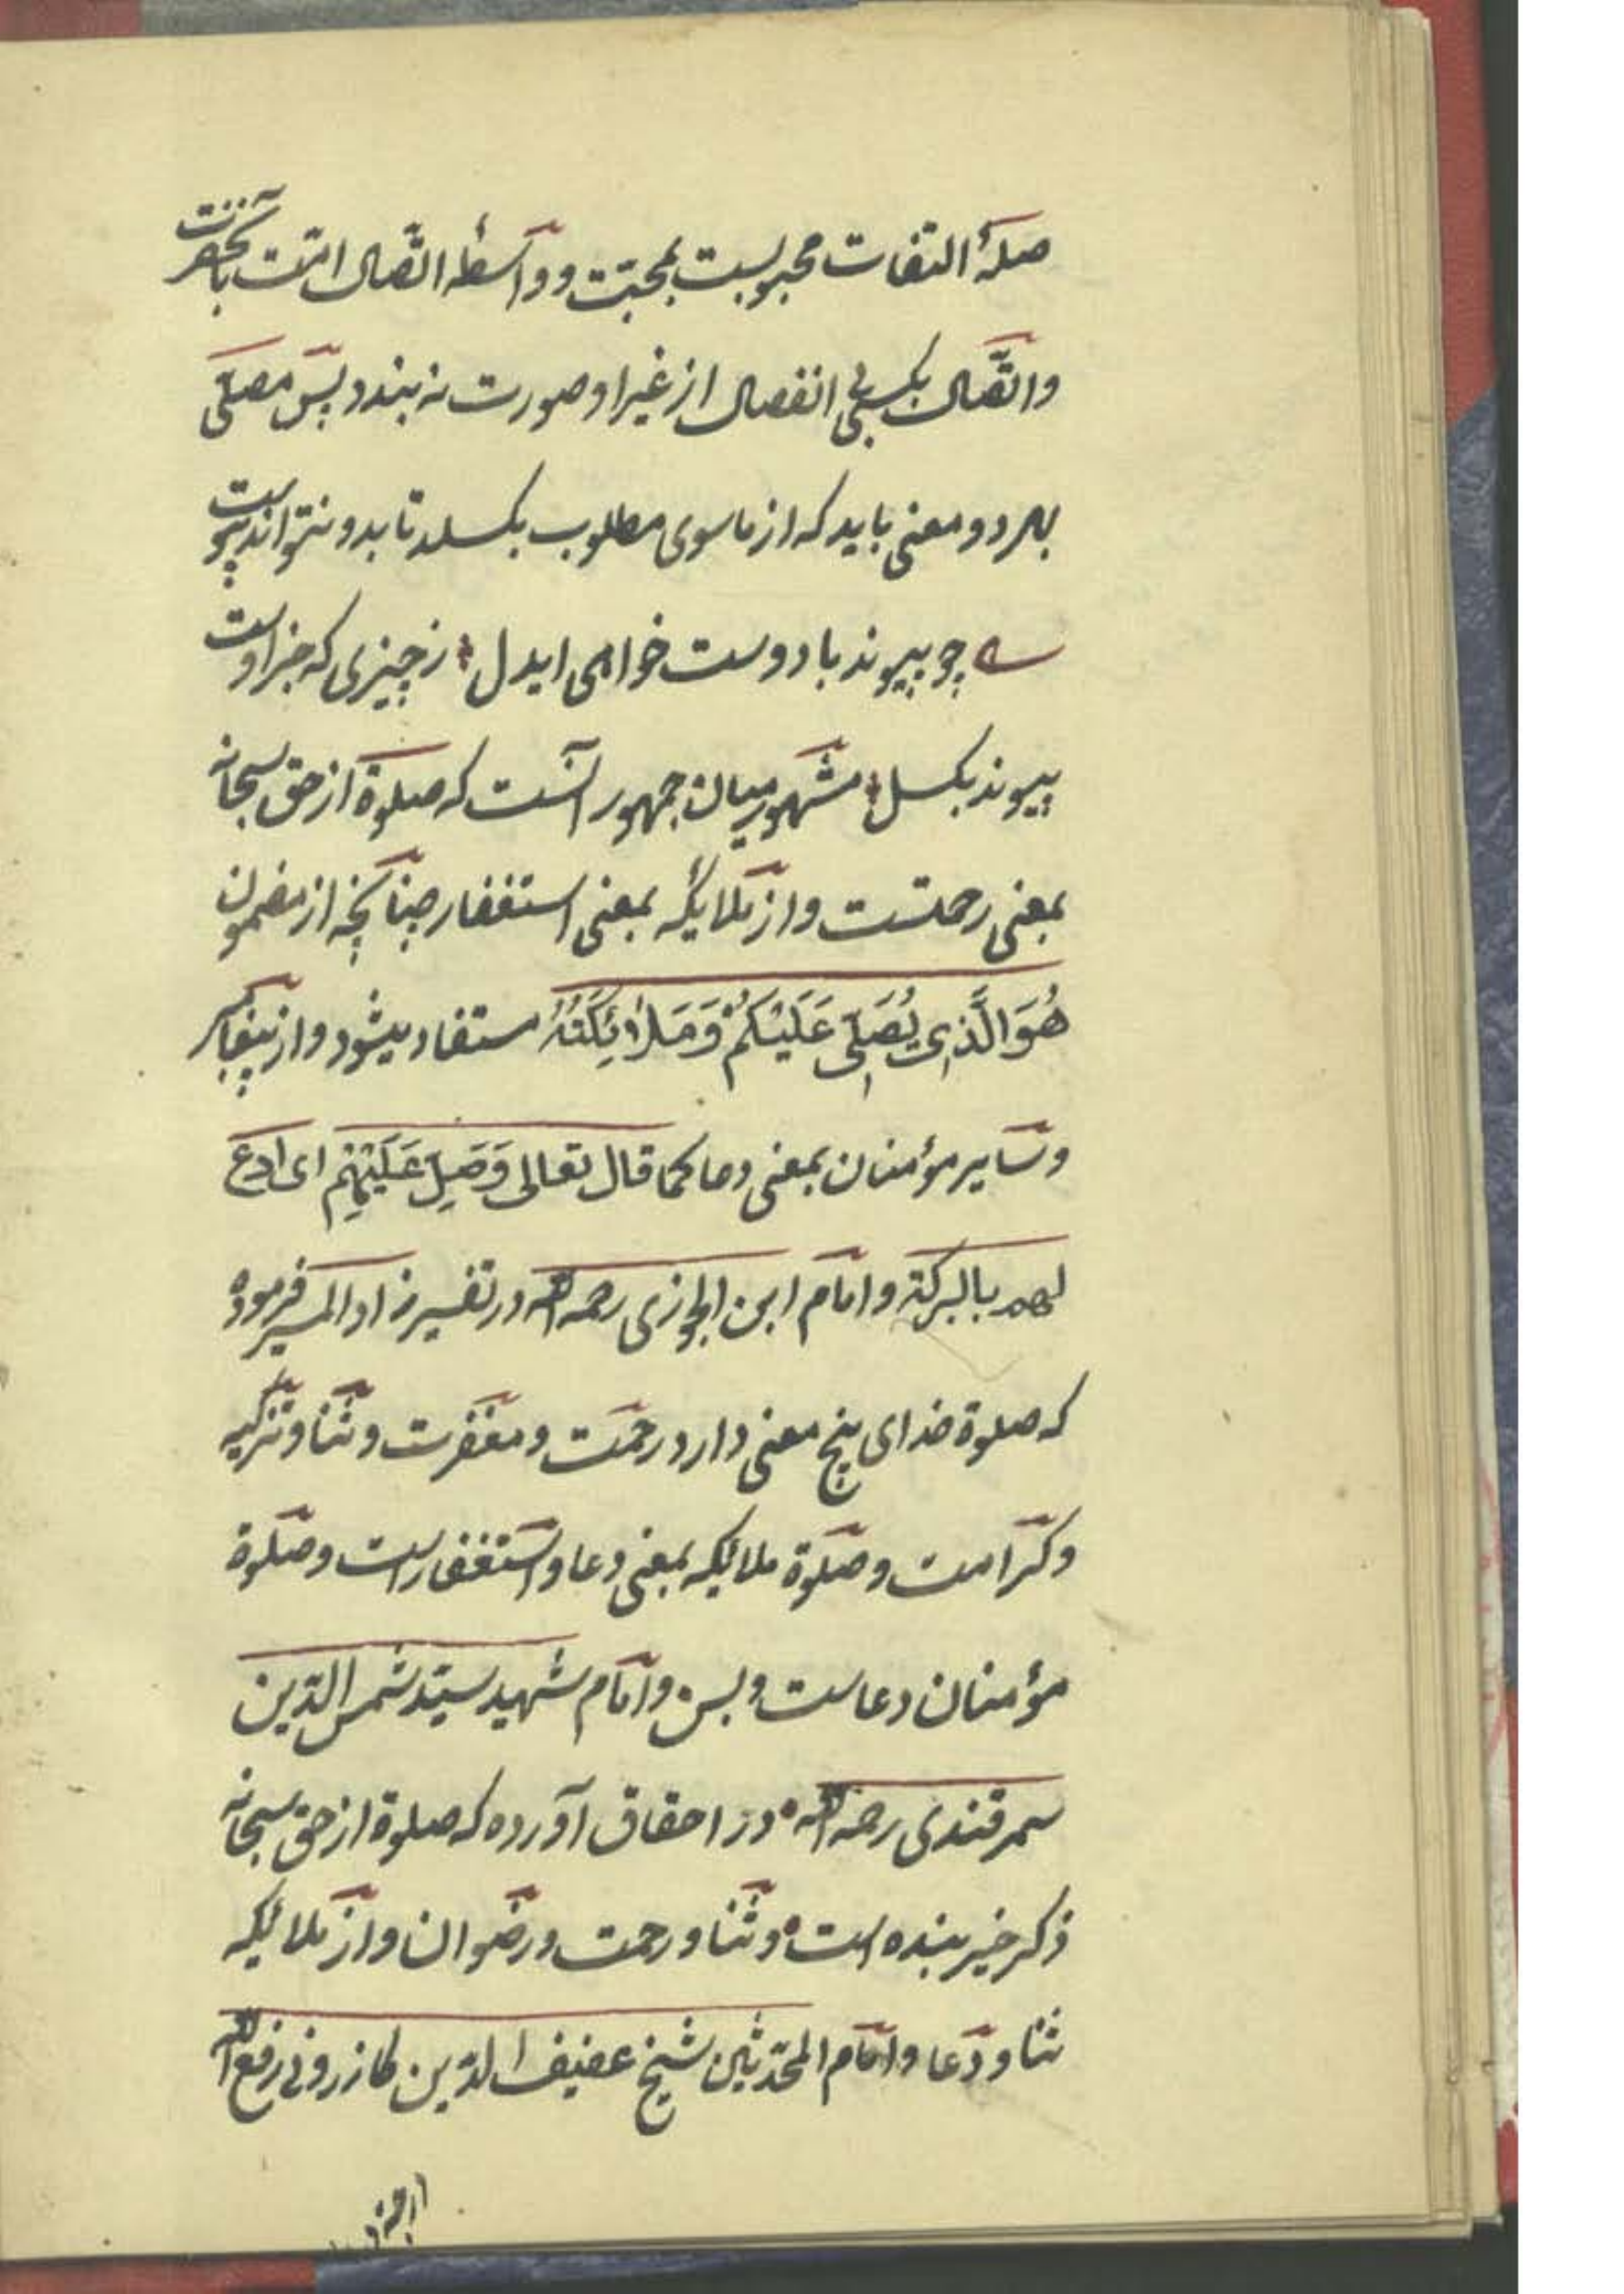 صلهٔ التفات محبوبست بمحبّت و واسطه اتّصال امّت بآنحضرت
واتّصال بکسی بی انفصال از غیر او صورت نه بندد پس مصلّی
بهر دو معنی باید که از ماسوی مطلوب بکسلد تا بدو نتواند پیوست
چو پیوند با دوست خواهی ایدل زچیزی که جز اوست
پیوند بکسل مشهور میان جمهور آنست که صلوة از حق سبحانه
بمعنی رحمتست و از ملایکه بمعنی استغفار چنانچه از مضمون
هُوَ الَّذِی یُصَلِّی عَلَیْکُمْ وَمَلَائِکَتُهُ مستفاد میشود و از پیغامبر
و سایر مؤمنان بمعنی دعا کما قال تعالی وَصَلِّ عَلَیْهِم ای ادع
لهم بالبرکة و امام ابن الجوزی رحمه الله در تفسیر زاد المسیر فرموده
که صلوة خدای پنج معنی دارد رحمت و مغفرت و ثنا و تزکیه
و کرامت و صلوة ملایکه بمعنی دعا و استغفار است و صلوة
مؤمنان دعاست و بس و امام شهید سیّد شمس الدّین
سمرقندی رحمه الله در احقاق آورده که صلوة از حق سبحانه
ذکر خیر بنده است و ثنا و رحمت و رضوان و از ملایکه
ثنا و دعا و امام المحدّثین شیخ عفیف الدّین کازرونی رفع الله